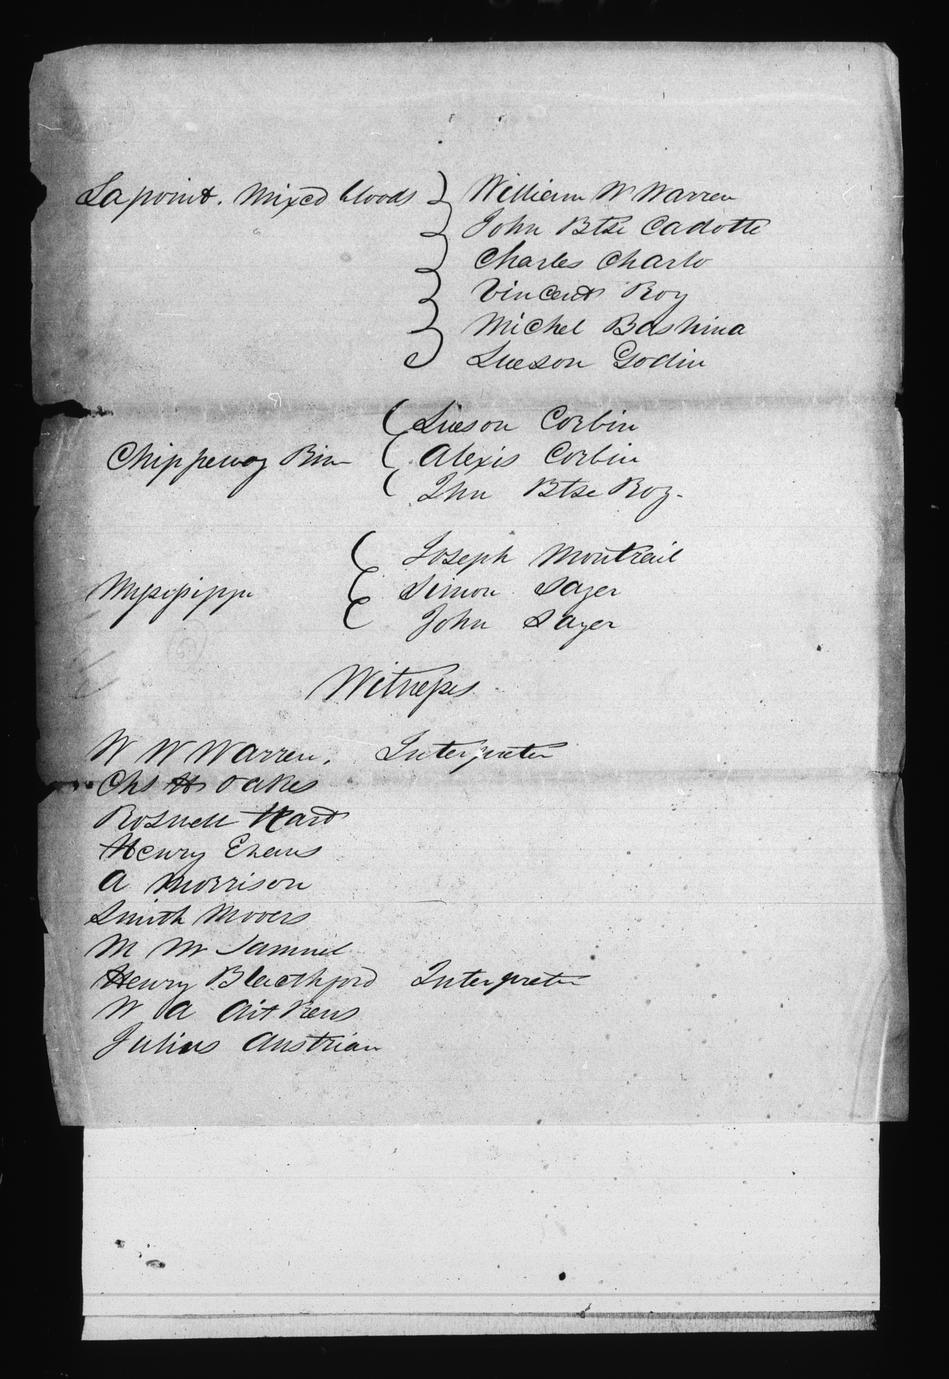 Lapoint. Mixed bloods William W Warren
John Btse Cadotte
Charles Charlo
Vincent Roy
Michel Bashina
Lueson Godin
Lueson Corbin
Chippeway Alexis Corbin
Jhn Btse Roy.
Joseph Montrail
Missisippi Simon Sayer
John Sayer
Witnesses
W W Warren. Interpreter
Chs H Oakes
Roswell Hart
Henry Evans
A Morrison
Smith Mooers
M M Samuel
Henry Blatchford Interpreter
W A Aitkens
Julius Austrian